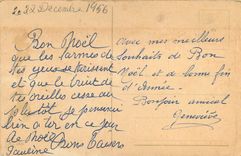 le 22 Décembre 1956
Bon Noël
que les larmes de
tes yeux se tarissent
et que le bruit de
tes oreilles cesse au
plus tôt. Je pense
bien à toi en ce jour
de Noël Bons Baisers
Pauline
avec mes meilleurs
souhaits de Bon
Noël et de bonne fin
d'année.
Bonjour amical
Geneviève